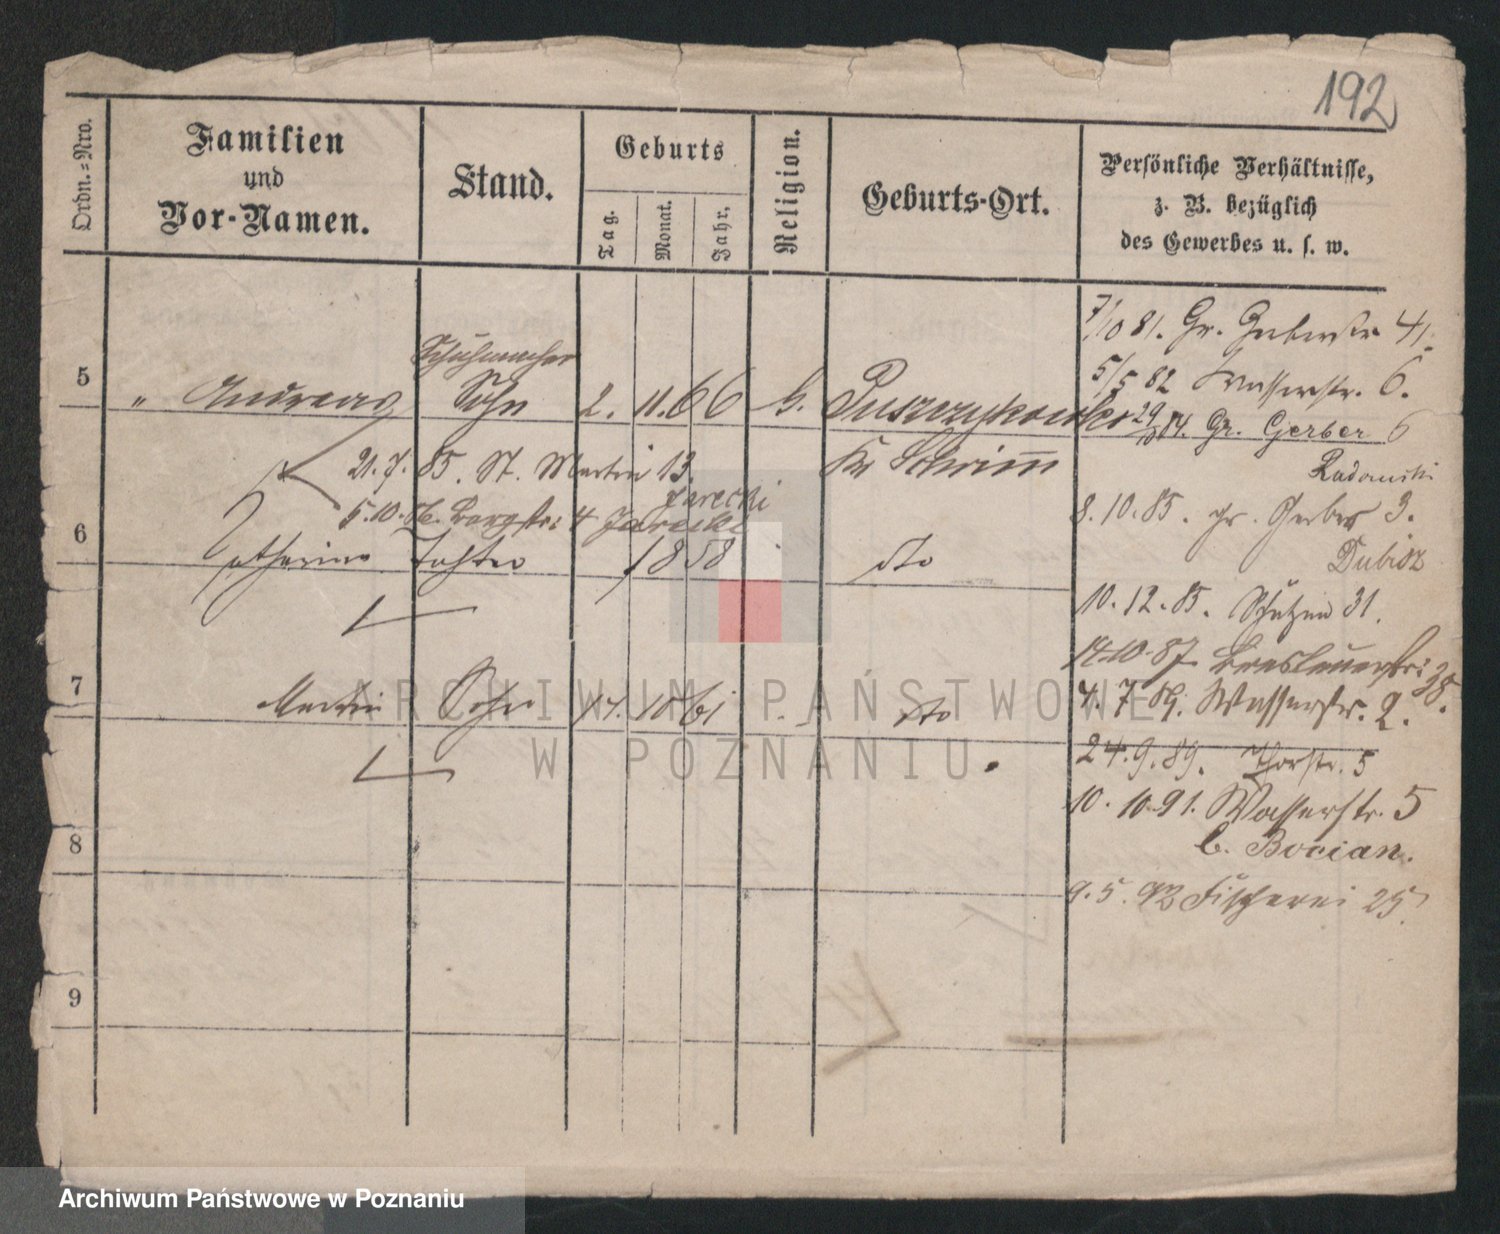 192
Ordn.=Nro.
Familien
und
Vor-Namen.
Stand.
Geburts
Tag.
Monat.
Jahr,
Religion.
Geburts-Ort.
Persönliche Verhältnisse,
z. B. bezüglich
des Gewerbes u. s. w.
7/10 81. Gr. Gerberstr 41.
5/5 82 Wasserstr. 6.
29 84. Gr. Gerber 6
Radomski
8.10.85. gr. Gerber 3.
Dubisz
10.12.85. Schützen 31.
14.10.87 Breslauerstr: 38.
4.7.89. Wasserstr. 2.
24.9.89. Thorstr. 5
10.10.91. Wasserstr. 5
b. Bocian.
9.5.92 Fischerei 25
5
" Andreas
Schuhmacher
Sohn
2. 11. 66
Puszczykowko
Kr Schrimm
21.7.85. St. Martin 13.
Jarecki
5.10.86. Bergstr: 4 Jarecki
6
Catharina Tochter 1858 dto
7
Martin Sohn 10 61 dto
8
9
ARCHIWUM PAŃSTWOWE
W POZNANIU
Archiwum Państwowe w Poznaniu